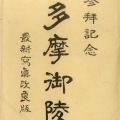 参拜記念
多摩御陵
最新寫真改良版